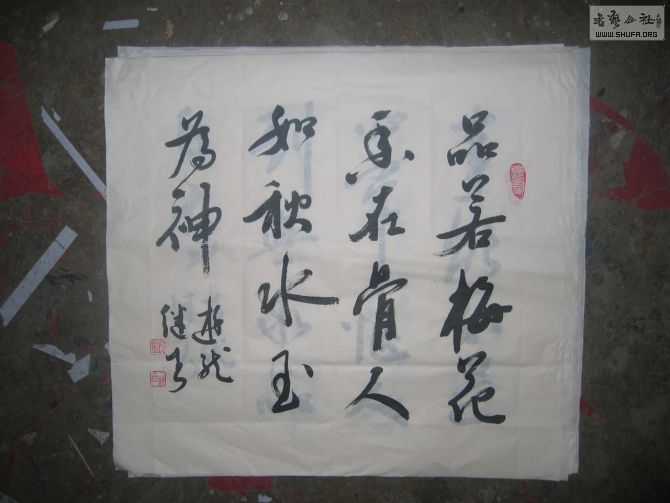 品若梅花
香在骨人
如秋水玉
为神
游龙
书艺公社
WWW.SHUFA.ORG